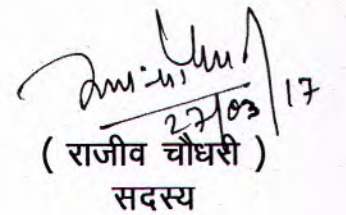 27/03/17
( राजीव चौधरी )
सदस्य